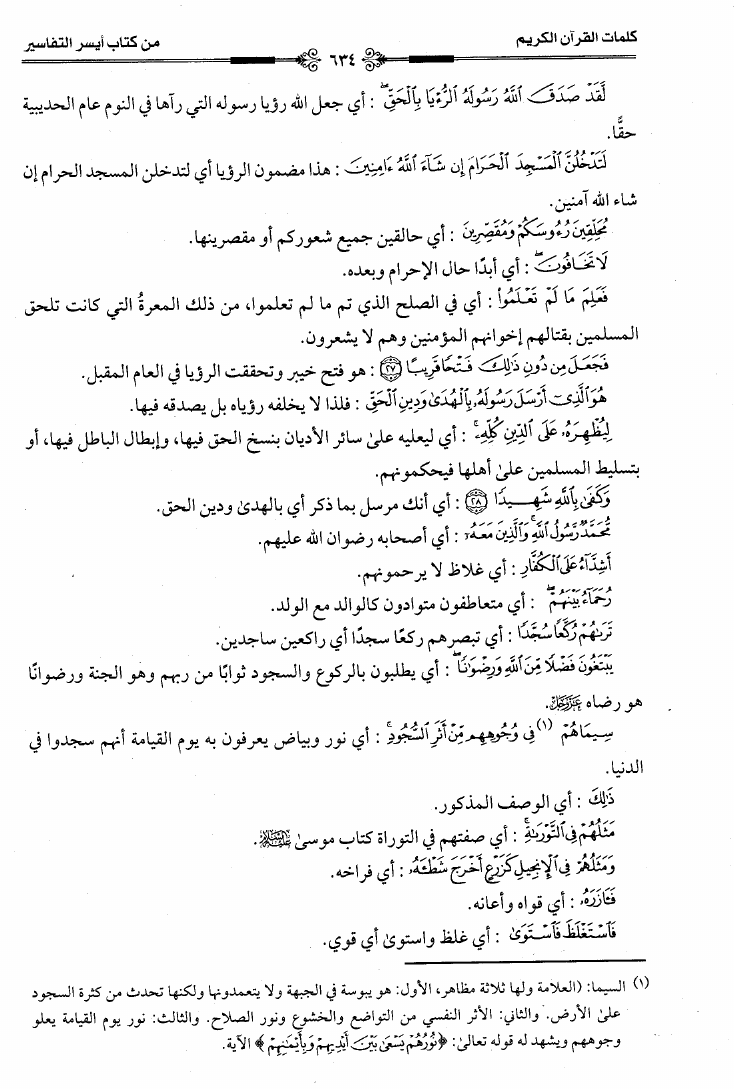 كلمات القرآن الكريم
٦٣٤
من كتاب أيسر التفاسير
لَّقَدْ صَدَقَ ٱللَّهُ رَسُولَهُ ٱلرُّءْيَا بِٱلْحَقِّ ۖ : أي جعل الله رؤيا رسوله التي رآها في النوم عام الحديبية
حقًّا.
لَتَدْخُلُنَّ ٱلْمَسْجِدَ ٱلْحَرَامَ إِن شَآءَ ٱللَّهُ ءَامِنِينَ : هذا مضمون الرؤيا أي لتدخلن المسجد الحرام إن
شاء الله آمنين.
مُحَلِّقِينَ رُءُوسَكُمْ وَمُقَصِّرِينَ : أي حالقين جميع شعوركم أو مقصرينها.
لَا تَخَافُونَ ۖ : أي أبدًا حال الإحرام وبعده.
فَعَلِمَ مَا لَمْ تَعْلَمُواْ : أي في الصلح الذي تم ما لم تعلموا، من ذلك المعرةُ التي كانت تلحق
المسلمين بقتالهم إخوانهم المؤمنين وهم لا يشعرون.
فَجَعَلَ مِن دُونِ ذَٰلِكَ فَتْحًا قَرِيبًا ﴿٢٧﴾ : هو فتح خيبر وتحققت الرؤيا في العام المقبل.
هُوَ ٱلَّذِىٓ أَرْسَلَ رَسُولَهُۥ بِٱلْهُدَىٰ وَدِينِ ٱلْحَقِّ : فلذا لا يخلفه رؤياه بل يصدقه فيها.
لِيُظْهِرَهُۥ عَلَى ٱلدِّينِ كُلِّهِۦ ۚ : أي ليعليه علىٰ سائر الأديان بنسخ الحق فيها، وإبطال الباطل فيها، أو
بتسليط المسلمين علىٰ أهلها فيحكمونهم.
وَكَفَىٰ بِٱللَّهِ شَهِيدًا ﴿٢٨﴾ : أي أنك مرسل بما ذكر أي بالهدىٰ ودين الحق.
مُّحَمَّدٌ رَّسُولُ ٱللَّهِ ۚ وَٱلَّذِينَ مَعَهُۥٓ : أي أصحابه رضوان الله عليهم.
أَشِدَّآءُ عَلَى ٱلْكُفَّارِ : أي غلاظ لا يرحمونهم.
رُحَمَآءُ بَيْنَهُمْ ۖ : أي متعاطفون متوادون كالوالد مع الولد.
تَرَىٰهُمْ رُكَّعًا سُجَّدًا : أي تبصرهم ركعًا سجدًا أي راكعين ساجدين.
يَبْتَغُونَ فَضْلًا مِّنَ ٱللَّهِ وَرِضْوَٰنًا ۖ : أي يطلبون بالركوع والسجود ثوابًا من ربهم وهو الجنة ورضوانًا
هو رضاه عَزَّوَجَلَّ.
سِيمَاهُمْ (١) فِى وُجُوهِهِم مِّنْ أَثَرِ ٱلسُّجُودِ ۚ : أي نور وبياض يعرفون به يوم القيامة أنهم سجدوا في
الدنيا.
ذَٰلِكَ : أي الوصف المذكور.
مَثَلُهُمْ فِى ٱلتَّوْرَىٰةِ ۚ : أي صفتهم في التوراة كتاب موسىٰ عَلَيْهِ السَّلَامُ.
وَمَثَلُهُمْ فِى ٱلْإِنجِيلِ كَزَرْعٍ أَخْرَجَ شَطْـَٔهُۥ : أي فراخه.
فَـَٔازَرَهُۥ : أي قواه وأعانه.
فَٱسْتَغْلَظَ فَٱسْتَوَىٰ : أي غلظ واستوىٰ أي قوي.
(١) السيما: (العلامة ولها ثلاثة مظاهر، الأول: هو يبوسة في الجبهة ولا يتعمدونها ولكنها تحدث من كثرة السجود
علىٰ الأرض. والثاني: الأثر النفسي من التواضع والخشوع ونور الصلاح. والثالث: نور يوم القيامة يعلو
وجوههم ويشهد له قوله تعالىٰ: ﴿نُورُهُمْ يَسْعَىٰ بَيْنَ أَيْدِيهِمْ وَبِأَيْمَٰنِهِمْ﴾ الآية.